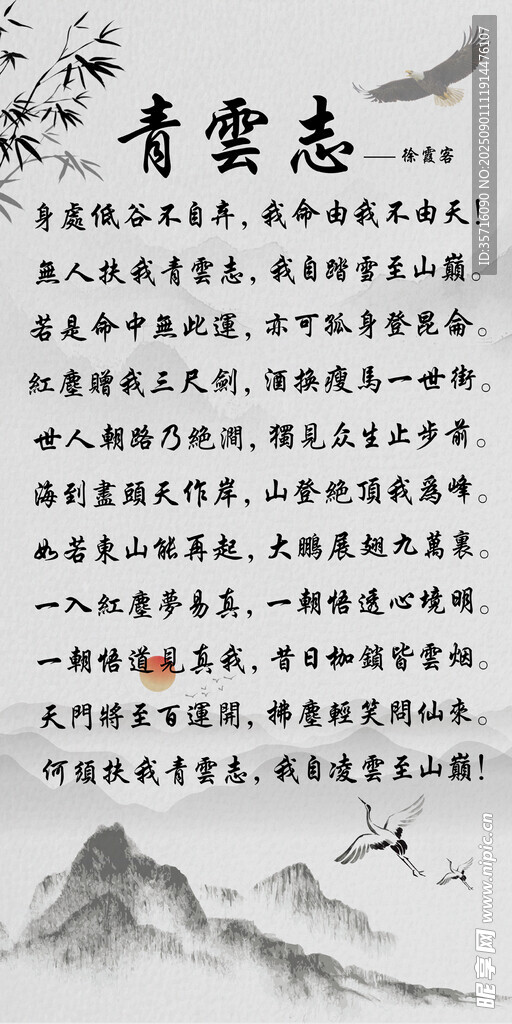 青雲志
——徐霞客
身處低谷不自弃，我命由我不由天！
無人扶我青雲志，我自踏雪至山巔。
若是命中無此運，亦可孤身登昆侖。
紅塵贈我三尺劍，酒換瘦馬一世街。
世人朝路乃絕澗，獨見众生止步前。
海到盡頭天作岸，山登絕頂我爲峰。
如若東山能再起，大鵬展翅九萬裏。
一入紅塵夢易真，一朝悟透心境明。
一朝悟道見真我，昔日枷鎖皆雲烟。
天門將至百運開，拂塵輕笑問仙來。
何須扶我青雲志，我自凌雲至山巔！
ID:35716090 NO:20250901111914476107
昵享网 www.nipic.cn